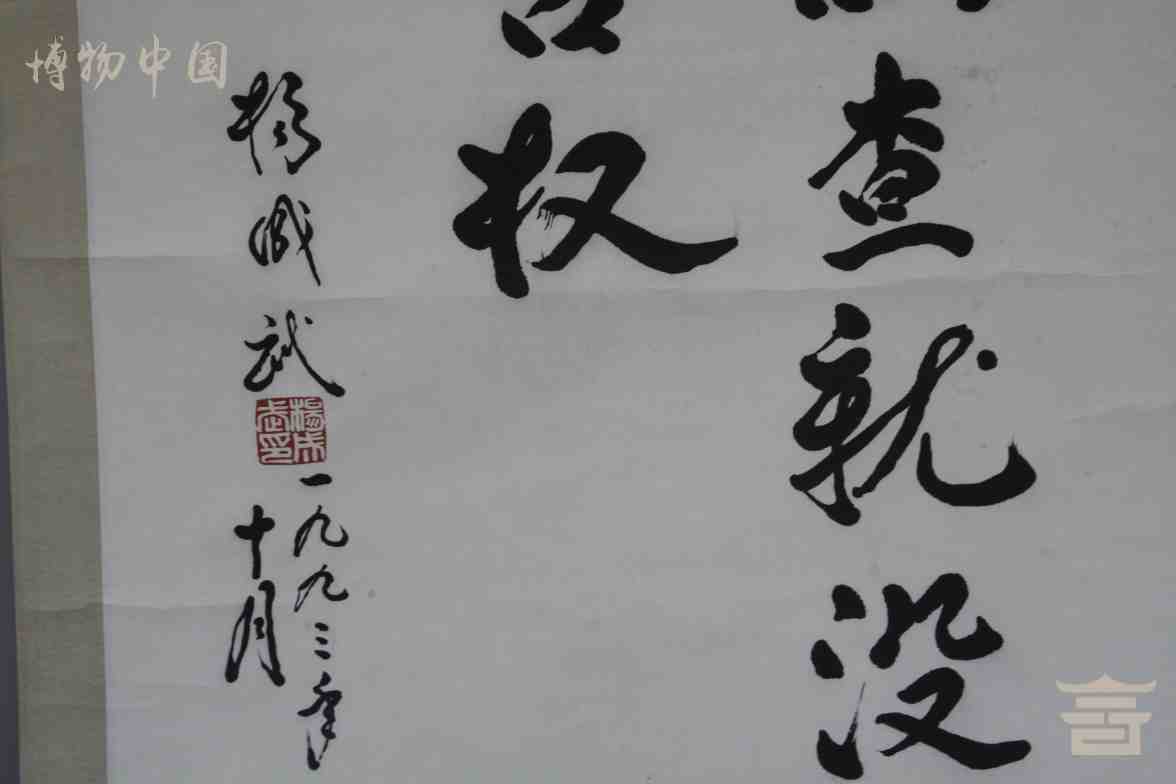 博物中国
查就没
权
杨成武
杨成武印
一九九三年
十月